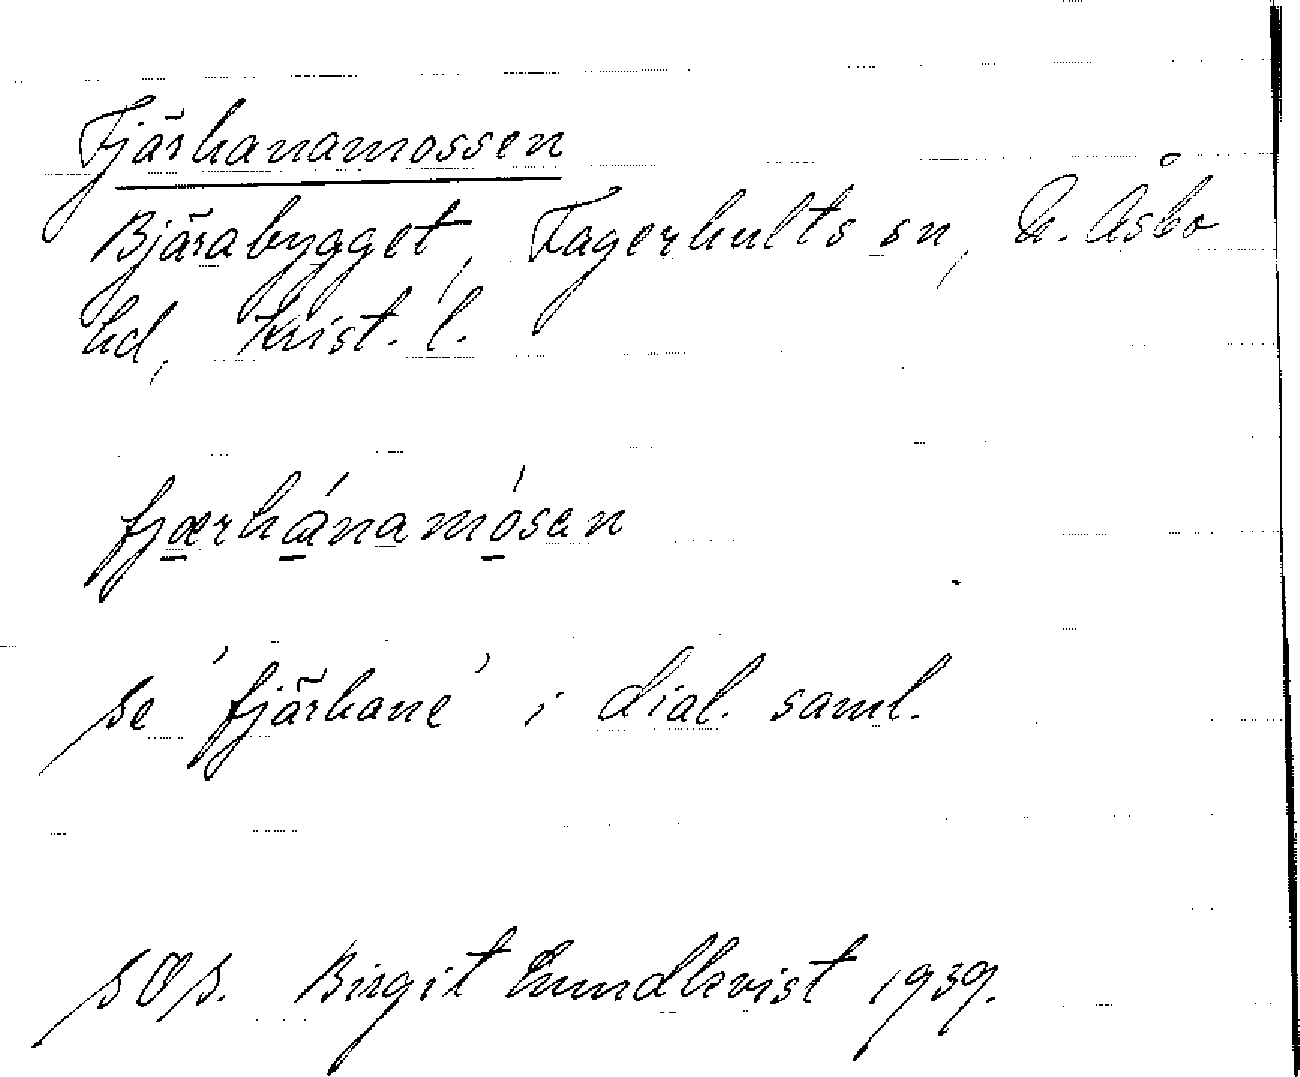 Fjärhanamossen
Bjärabygget, Fagerhults sn, N. Åsbo
hd, Krist. l.
fjærhánamósen
se 'fjärhane' i dial. saml.
sOs. Birgit Lundkvist 1939.